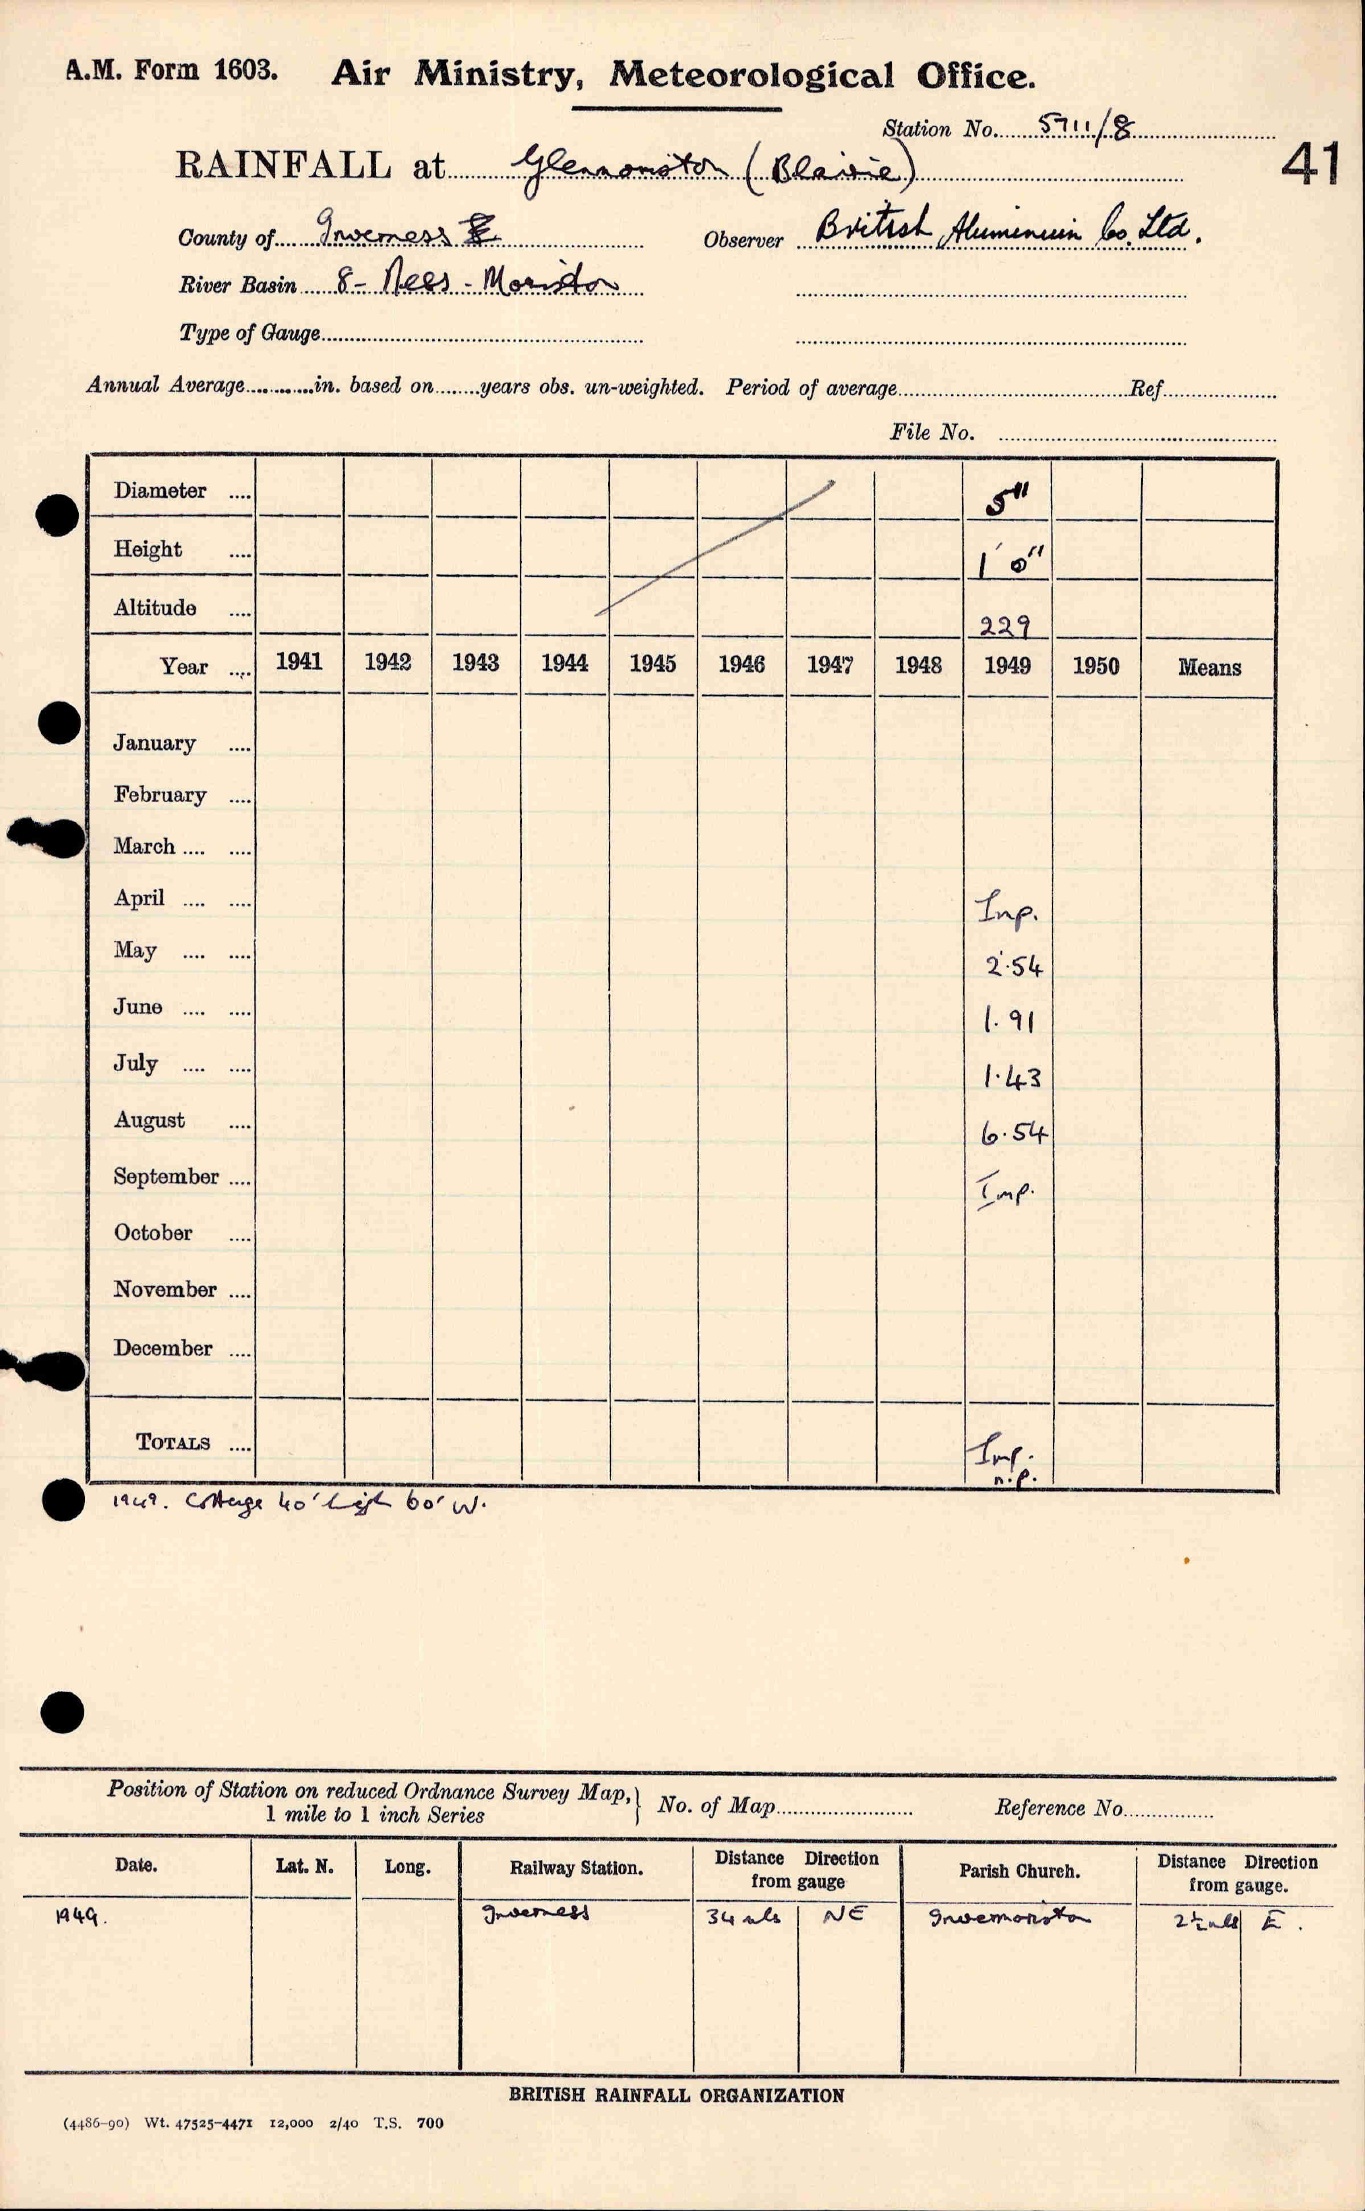 A.M. Form 1603. Air Ministry, Meteorological Office.
Station No. 5711/8
41
RAINFALL at Glenmoriston (Blairie)
County of Inverness Observer British Aluminium Co. Ltd.
River Basin 8 - Ness - Moriston
Type of Gauge
Annual Average in. based on years obs. un-weighted. Period of average Ref
File No.
Diameter 5"
Height 1' 0"
Altitude 229
Year 1941 1942 1943 1944 1945 1946 1947 1948 1949 1950 Means
January
February
March
April Imp.
May 2.54
June 1.91
July 1.43
August 6.54
September Imp.
October
November
December
TOTALS Imp.
n.p.
1949. Cottage 40' high 60' W.
Position of Station on reduced Ordnance Survey Map,
1 mile to 1 inch Series
No. of Map Reference No.
Date. Lat. N. Long. Railway Station. Distance Direction from gauge Parish Church. Distance Direction from gauge.
1949. Inverness 34 mls NE Invermoriston 2½ mls E.
BRITISH RAINFALL ORGANIZATION
(4486-90) Wt. 47525-4471 12,000 2/40 T.S. 700